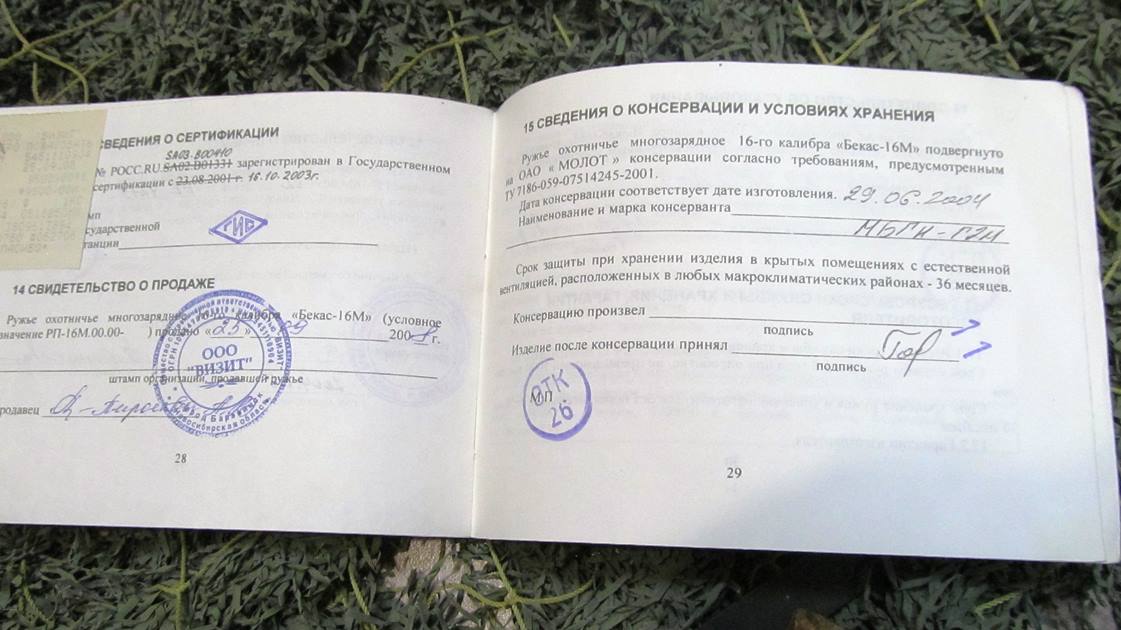 СВЕДЕНИЯ О СЕРТИФИКАЦИИ
SA03.B00410
№ РОСС.RU.SA02.B01331 зарегистрирован в Государственном
сертификации с 23.08.2001 г. 16.10.2003г.
мп
сударственной
танции
ГИС
14 СВИДЕТЕЛЬСТВО О ПРОДАЖЕ
Ружье охотничье многозарядное 16-го калибра «Бекас-16М» (условное
значение РП-16М.00.00- ) продано «25» 09 2004 г.
ООО
"ВИЗИТ"
штамп организации, продавшей ружье
родавец
Новосибирская область
28
15 СВЕДЕНИЯ О КОНСЕРВАЦИИ И УСЛОВИЯХ ХРАНЕНИЯ
Ружье охотничье многозарядное 16-го калибра «Бекас-16М» подвергнуто
на ОАО « МОЛОТ » консервации согласно требованиям, предусмотренным
ТУ 7186-059-07514245-2001.
Дата консервации соответствует дате изготовления. 29.06.2004
Наименование и марка консерванта
Срок защиты при хранении изделия в крытых помещениях с естественной
вентиляцией, расположенных в любых макроклиматических районах - 36 месяцев.
Консервацию произвел
подпись
Изделие после консервации принял
подпись
МП
ОТК
26
29